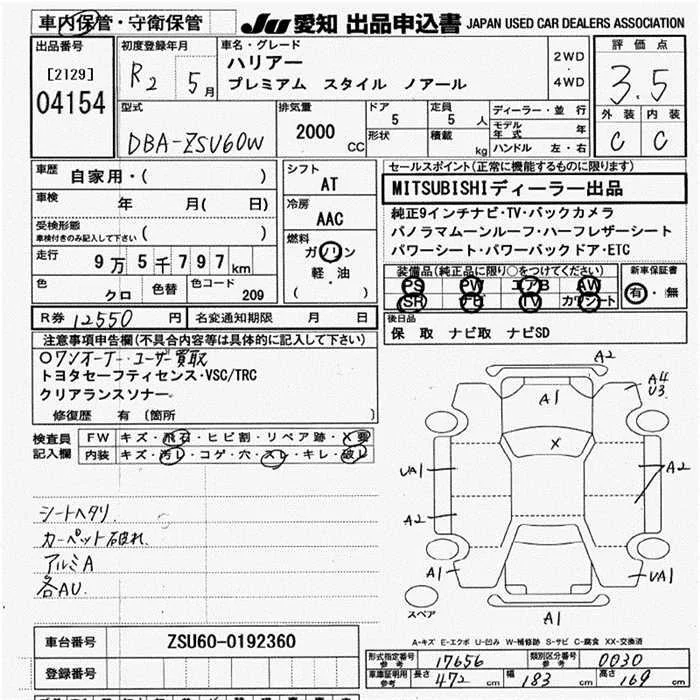 車内保管・守衛保管
JU 愛知 出品申込書 JAPAN USED CAR DEALERS ASSOCIATION
出品番号
[2129]
04154
初度登録年月
R2 5月
車名・グレード
ハリアー
プレミアム スタイル ノアール
2WD
・
4WD
評価点
3.5
外装 内装
C C
型式
DBA-ZSU60W
排気量
2000 CC
ドア
5
形状
定員
5 人
積載 kg
ディーラー・並行
モデル年式 年
ハンドル 左・右
車歴 自家用・( )
車検 年 月( 日)
受検形態
車検付きのみ記入して下さい ( )
走行 9万5千797km
色 クロ 色替 色コード 209
シフト
AT
冷房
AAC
燃料
ガソリン
軽・油
( )
セールスポイント(正常に機能するものに限ります)
MITSUBISHIディーラー出品
純正9インチナビ・TV・バックカメラ
パノラマムーンルーフ・ハーフレザーシート
パワーシート・パワーバックドア・ETC
装備品(純正品に限り○をつけてください)
PS PW エアB AW
SR ナビ TV カワシート
新車保証書
有・無
R券 12550 円 名変通知期限 月 日
後日品
保 取 ナビ取 ナビSD
注意事項申告欄(不具合内容等は具体的に記入して下さい)
○ワンオーナー・ユーザー買取
トヨタセーフティセンス・VSC/TRC
クリアランスソナー
修復歴 有 〔箇所 〕
検査員記入欄
FW キズ・飛石・ヒビ割・リペア跡・X要
内装 キズ・汚レ・コゲ・穴・スレ・キレ・破レ
シートヘタリ
カーペット破れ
アルミA
各AU
A2
A1
A4
U3
X
UA1
A2
A2
A1
UA1
A1
スペア
A-キズ E-エクボ U-凹み W-補修跡 S-サビ C-腐食 XX-交換済
車台番号 ZSU60-0192360
登録番号
形式指定番号参考 17656 類別区分番号参考 0030
車庫証明用参考 長さ 472 cm 幅 183 cm 高さ 169 cm